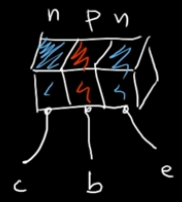 n p n
c b e